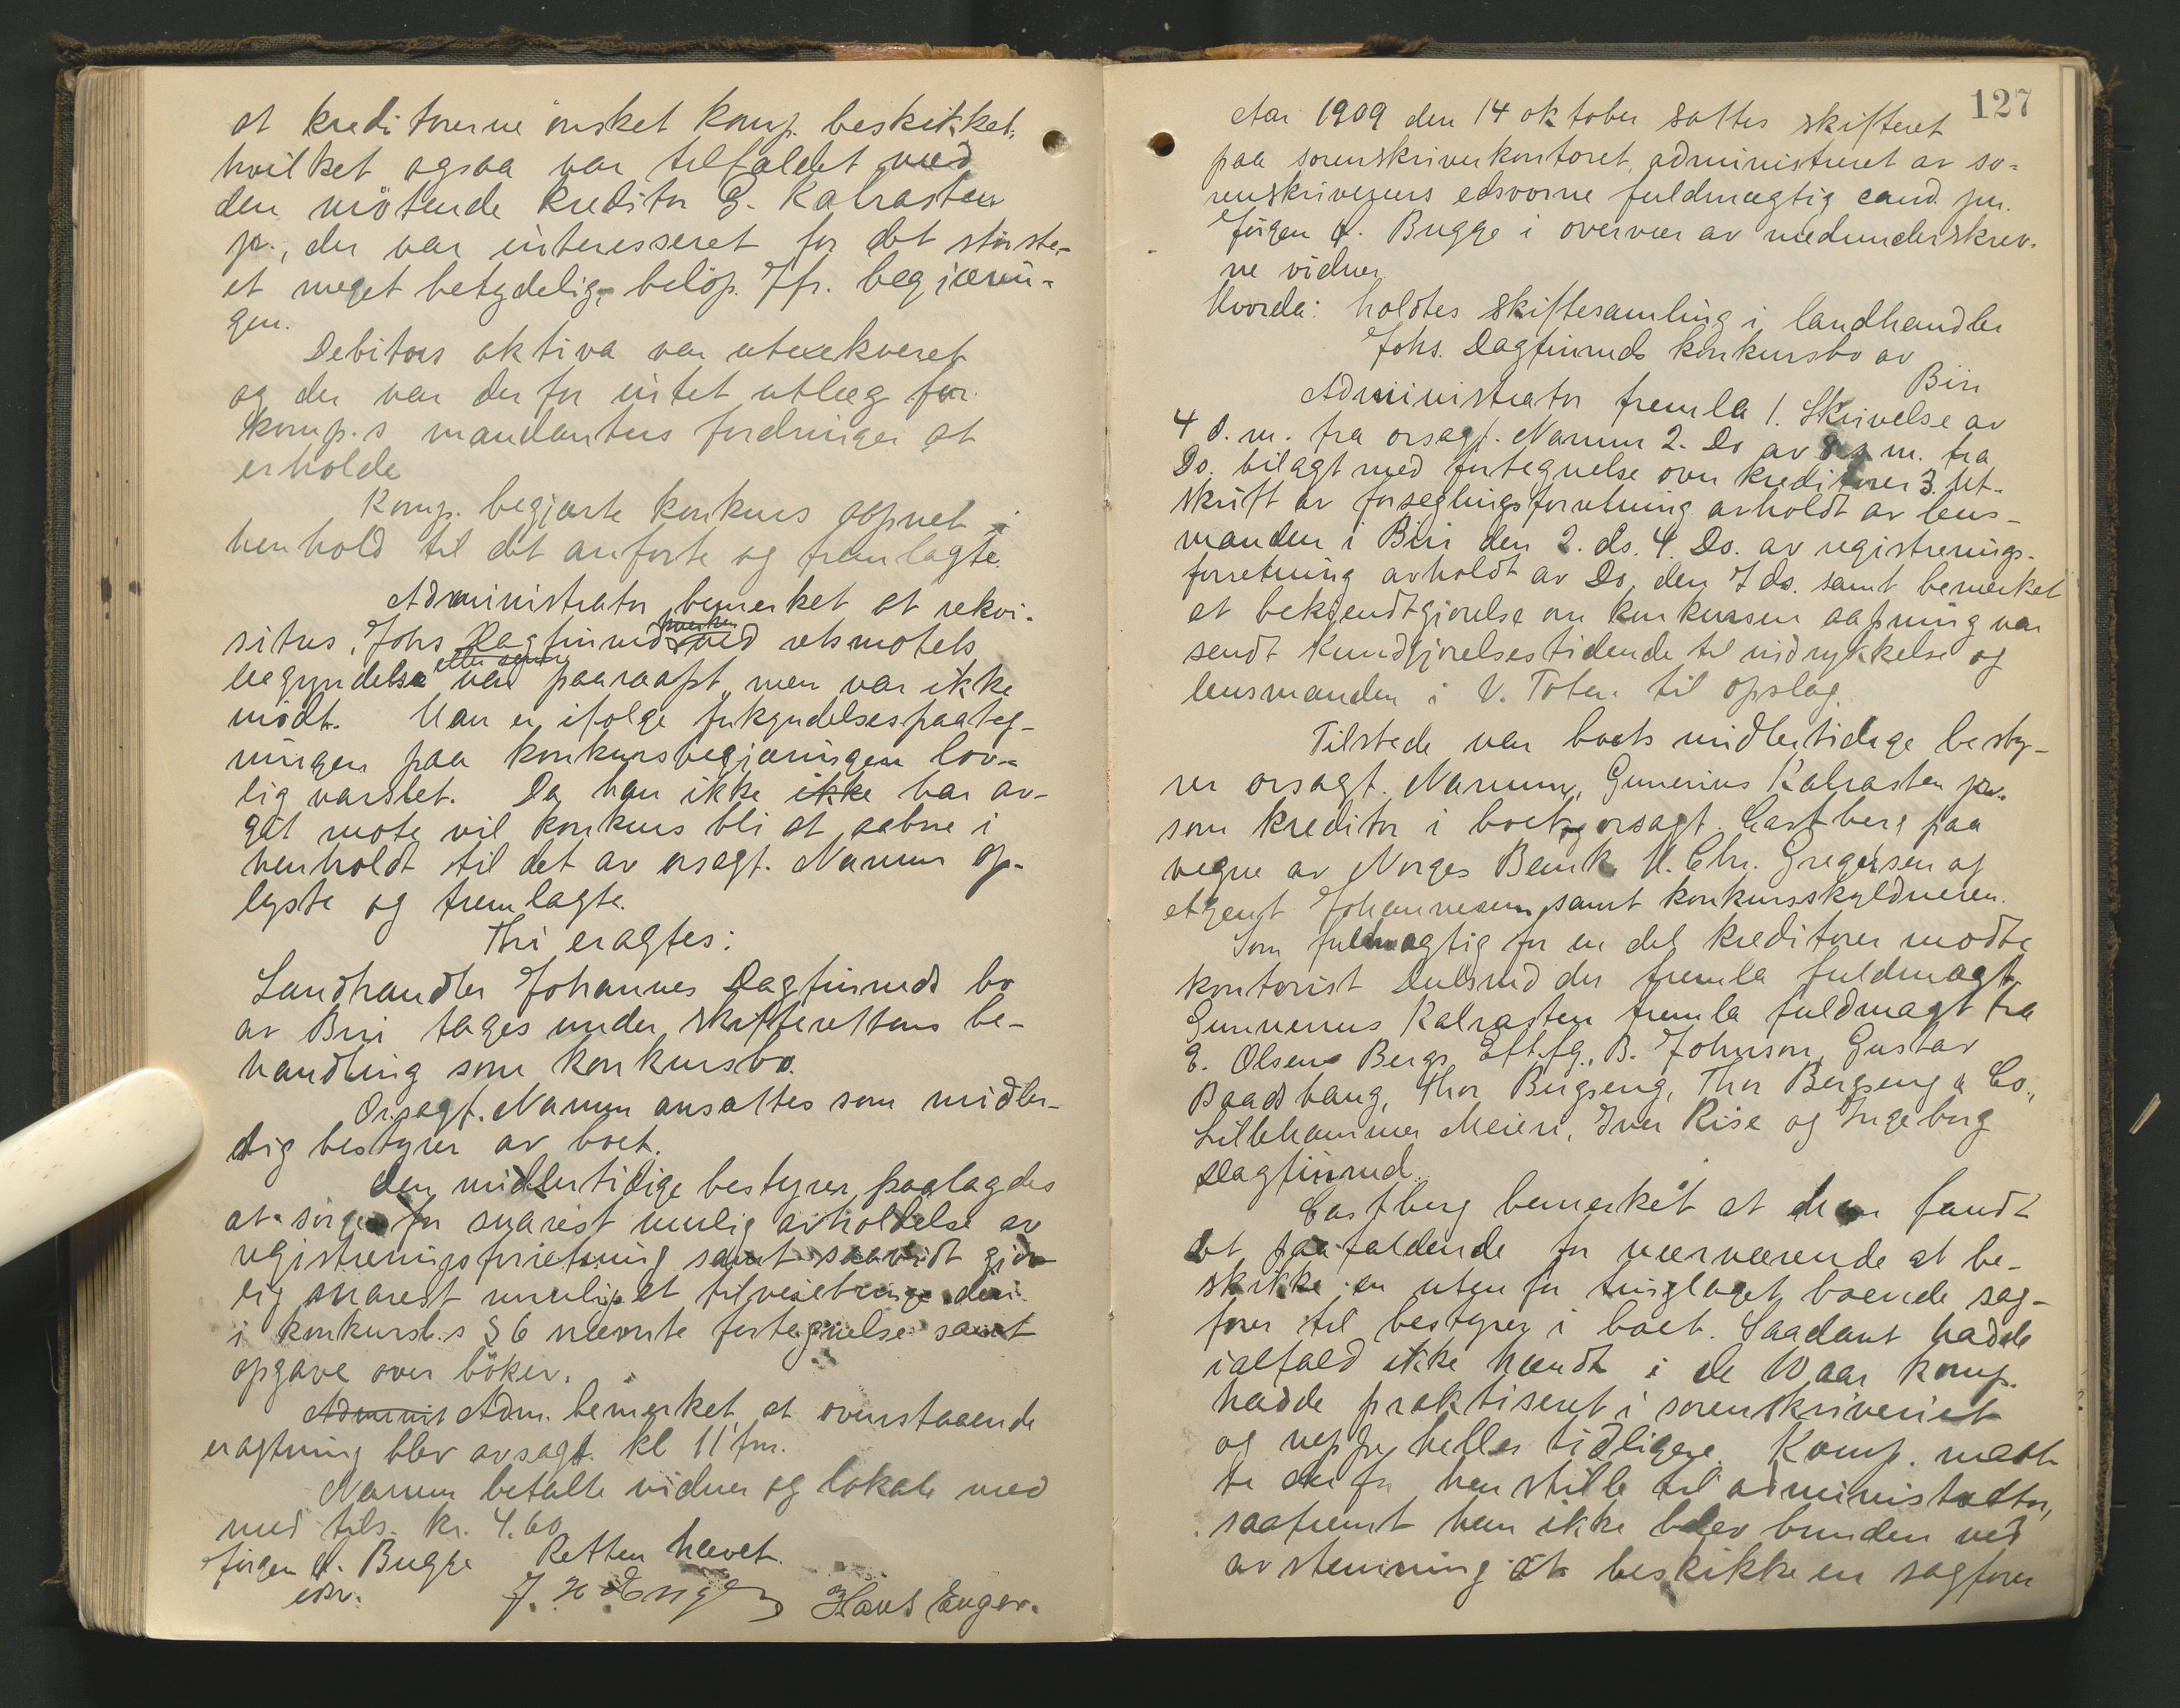 at kreditorerne ønsket komp. beskikket,
hvilket ogsaa var tilfældet med
den mötende kreditor G. Kalrasten
jr., der var interesseret for det störste,
et meget betydelig, belöp. Jfr. begjærin-
gen.
Debitors aktiva var utexekveret
og der var derfor intet utlæg for
komp.s mandanters fordringer at
erholde
Komp. begjærte konkurs aapnet i
henhold til det anførte og fremlagte.
Administrator bemerket at rekvi-
situs, Johs Dagfinrud hverken ved retsmøtets
begyndelse eller senere var paaraapt, men var ikke
mödt. Han er ifølge forkyndelsespaateg-
ningen paa konkursbegjæringen lov-
lig varslet. Da han ikke ikke har av-
git møte vil konkurs bli at aabne i
henholdt til det av orsagf. Narum op-
lyste og fremlagte.
Thi eragtes:
Landhandler Johannes Dagfinruds bo
av Biri tages under skifterettens be-
handling som konkursbo.
Orsagf. Narum ansattes som midler-
tidig bestyrer av boet.
Den midlertidige bestyrer paalagdes
at sørge for snarest mulig avholdelse av
registreringsforretning samt saavidt gjør
lig snarest mulig at tilveiebringe den
i konkursl.s § 6 nævnte fortegnelse samt
opgave over böker.
Adminis Adm. bemerket at ovenstaaende
eragtning blev avsagt kl 11 fm.
Narum betalte vidner og lokale med
med tils. kr. 4.60
Retten hævet.
Jörgen A. Bugge
edsv.
J. H. Enger Hans Enger.
127
Aar 1909 den 14 oktober sattes skifteret
paa sorenskriverkontoret, administreret av so-
renskriverens edsvorne fuldmægtig cand. jur.
Jörgen A. Bugge i overvær av medunderskrev-
ne vidner.
Hvorda: holdtes skiftesamling i landhandler
Johs. Dagfinruds konkursbo av
Biri
Administrator fremla 1. Skrivelse av
4 d.m. fra orsagf. Narum 2. Do av 8 d.m. fra
Do. bilagt med fortegnelse over kreditorer 3. Ut-
skrift av forseglingsforretning avholdt av lens-
manden i Biri den 2. ds. 4. Do. av registrerings-
forretning avholdt av Do. den 7 ds. samt bemerket
at bekjendtgjørelse om konkursen aapning var
sendt Kundgjørelsestidende til indrykkelse og
lensmanden i V. Toten til opslag.
Tilstede var boets midlertidige besty-
rer orsagf. Narum, Gunerius Kalrasten jr.
som kreditor i boet, og orsagf. Castberg paa
vegne av Norges Bank, H. Chr. Gregersen og
Agent Johannesen samt konkursskyldneren.
Som fuldmægtig for en del kreditorer mødte
kontorist Dulsrud der fremla fuldmagt,
Gunnerius Kalrasten fremla fuldmagt fra
E. Olsens Bergs Eftflg., B. Johnson, Gustav
Baadshaug, Thor Bergseng, Thor Bergseng & Co.,
Lillehammer Meieri, Iver Rise og Ingeborg
Dagfinrud.
Castberg bemerket at han fandt
det paafaldende for nærværende at be-
skikke en uten for tinglaget boende sag-
fører til bestyrer i boet. Saadant hadde
ialfald ikke hændt i de 10 aar komp.
hadde praktiseret i sorenskriveriet
og neppe heller tidligere. Komp. maat-
te derfor henstille til administrator,
saafremt han ikke blev bunden ved
avstemning at beskikke en sagfører